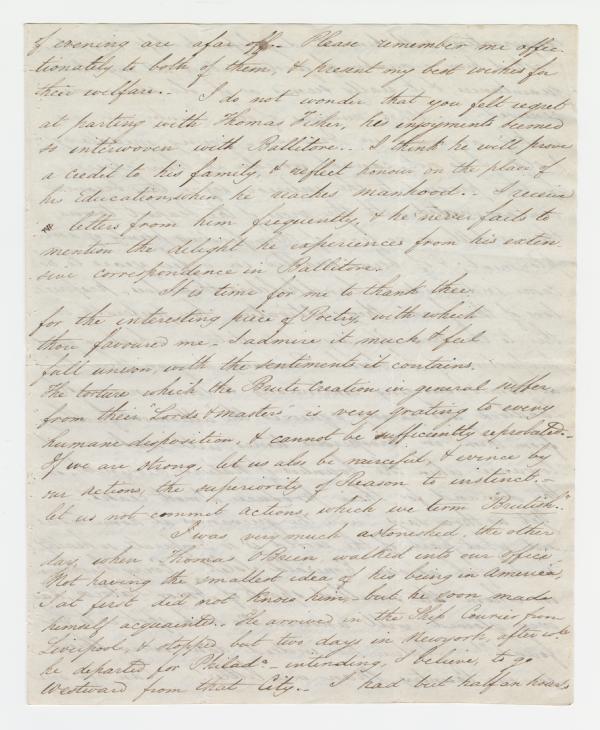 of evening are afar off.. Please remember me affec
tionately to both of them, & present my best wishes for
their welfare.. I do not wonder that you felt regret
at parting with Thomas Fisher, his enjoyments seemed
so interwoven with Ballitore.. I think he will prove
a credit to his family, & reflect honour on the place of
his Education, when he reaches manhood.. I receive
letters from him frequently, & he never fails to
mention the delight he experiences from his exten
sive correspondence in Ballitore.
It is time for me to thank thee
for the interesting piece of Poetry, with which
thou favoured me - I admire it much & feel
full unison, with the sentiments it contains.
The torture which the Brute Creation in general suffer
from their "Lords & masters", is very grating to every
humane disposition, & cannot be sufficiently reprobated -
If we are strong, let us also be merciful, & evince by
our actions, the superiority of Reason to instinct. -
let us not commit actions, which we term "Brutish"..
I was very much astonished, the other
day, when Thomas O'Brien walked into our office
Not having the smallest idea of his being in America,
I at first did not know him - but he soon made
himself acquainted.. He arrived in the Ship Courier from
Liverpool, & stopped but two days in Newyork, after wch
he departed for Philada - intending, I believe, to go
Westward from that City.. I had but half an hours